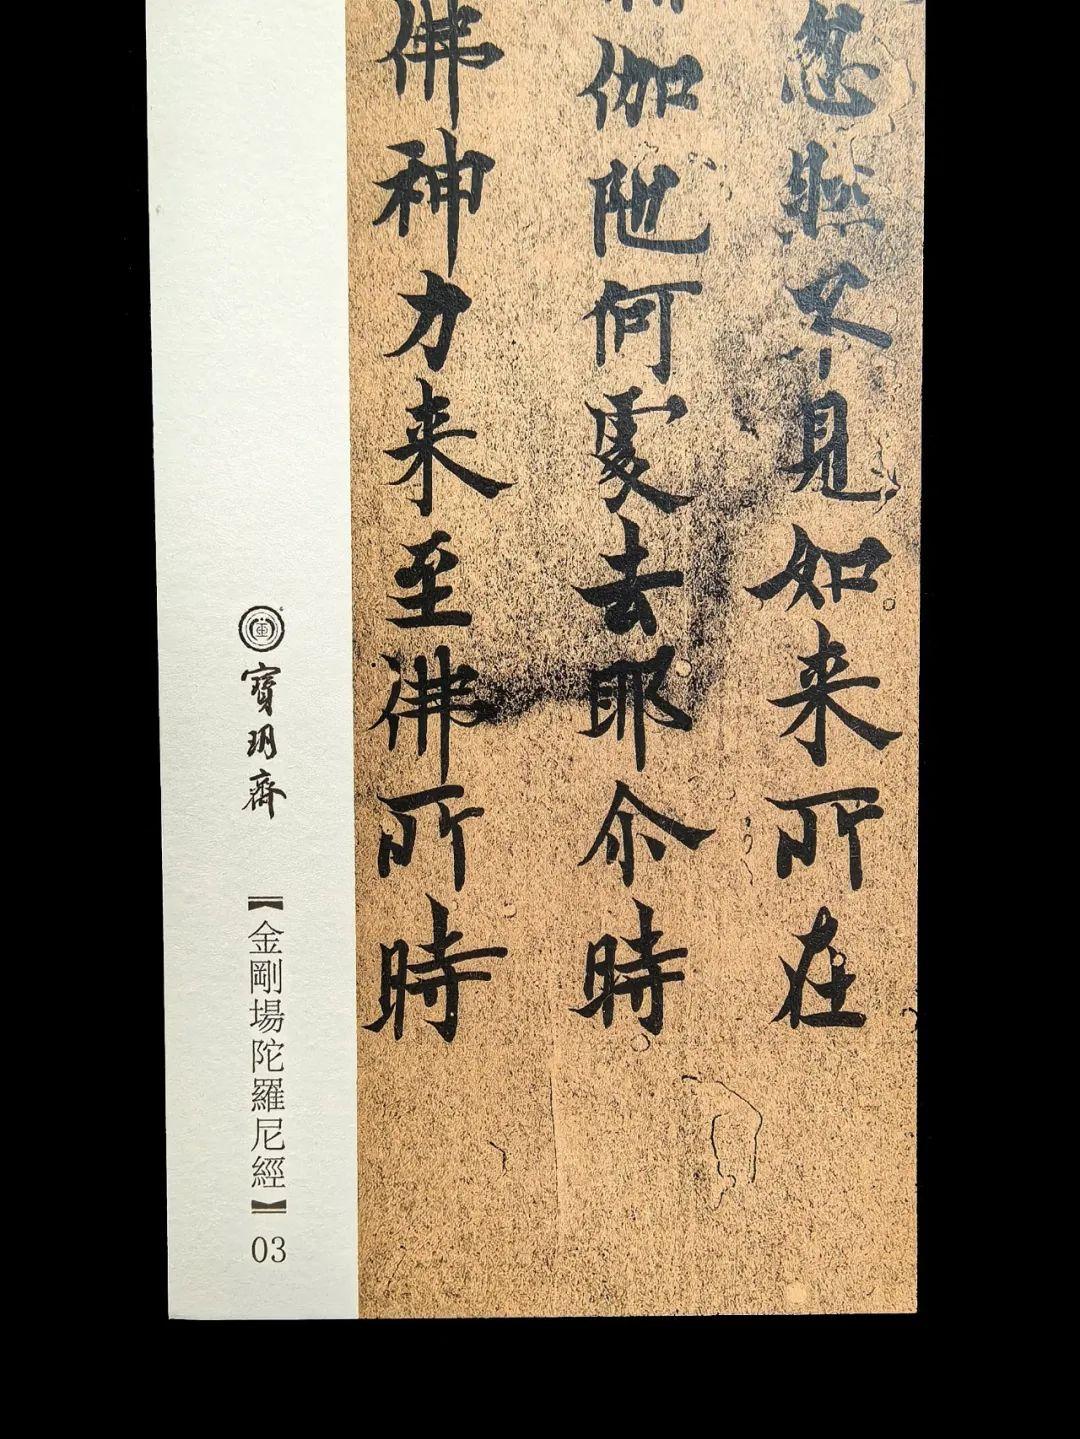 忽然不見如来所在
伽陁何處去耶尒時
佛神力来至佛所時
寶玥齋
【金剛場陀羅尼經】03